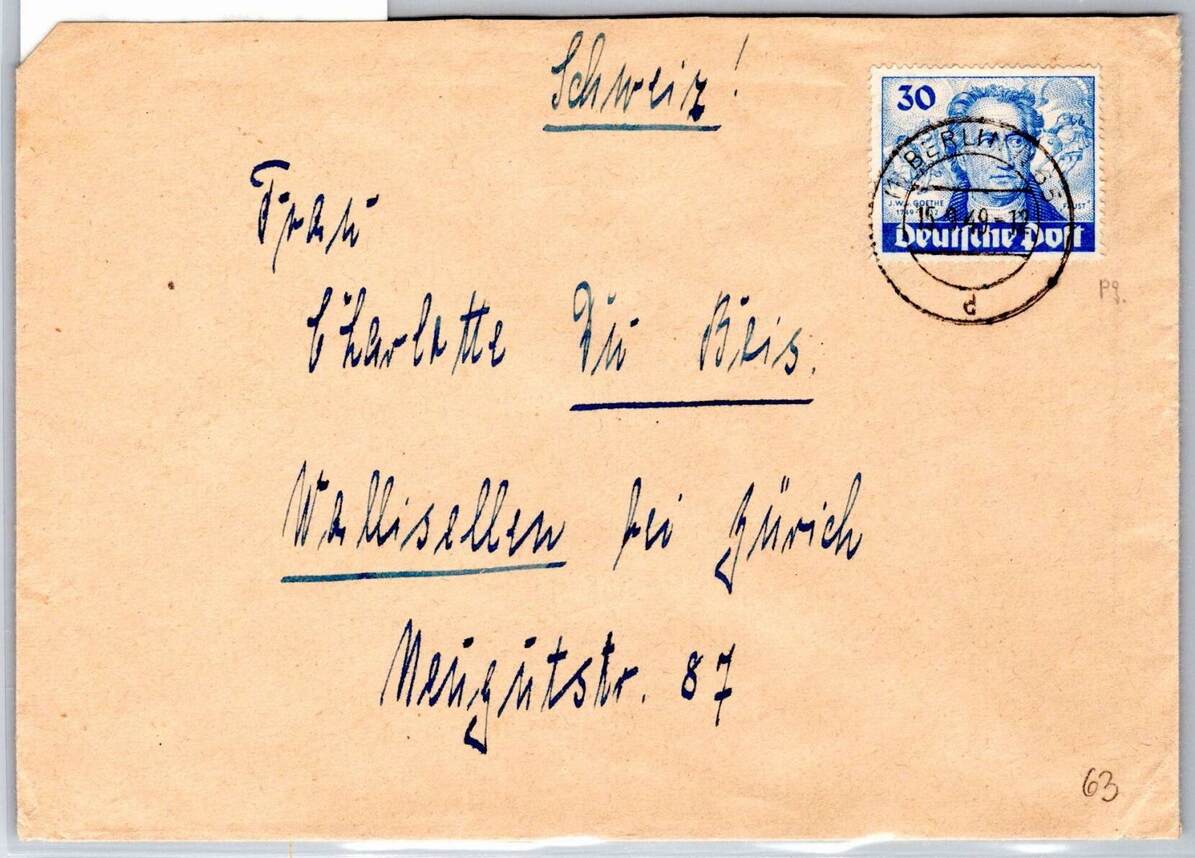 Schweiz!
30
J.W.v. GOETHE
FAUST
Deutsche Post
BERLIN
49.-12
d
Pg.
Frau
Charlotte Du Bois.
Wallisellen bei Zürich
Neugutstr. 87
63